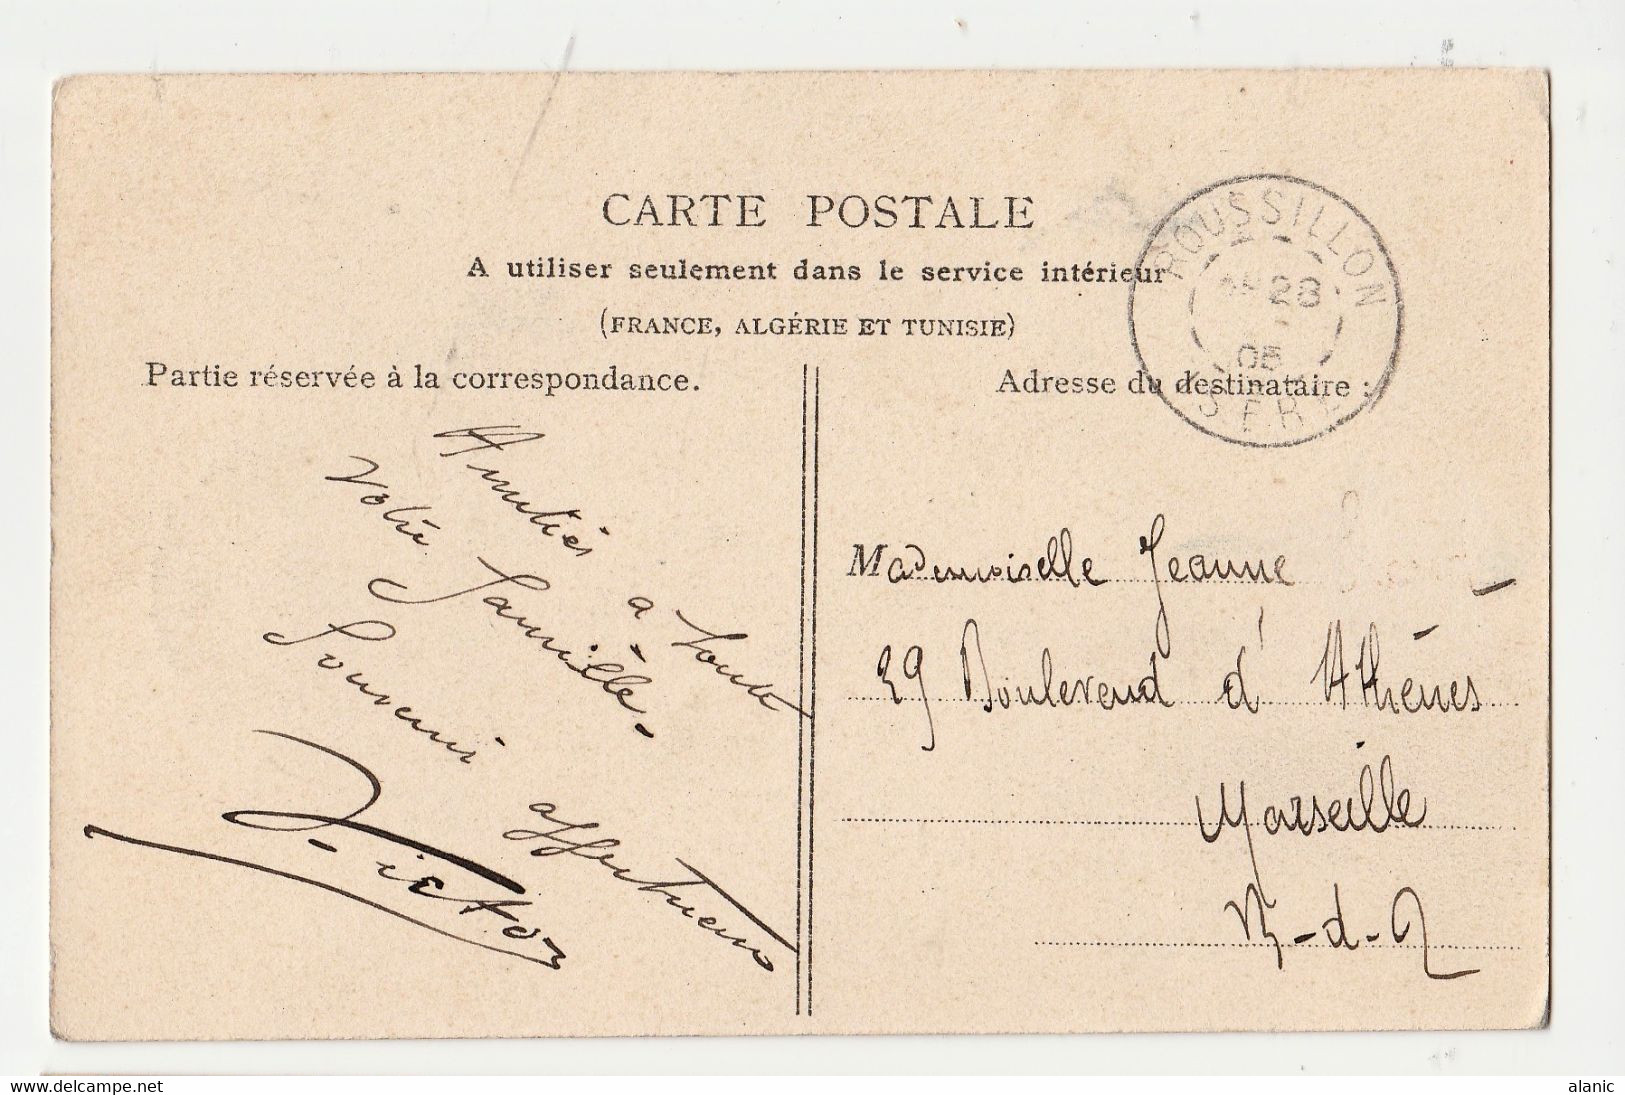 CARTE POSTALE
A utiliser seulement dans le service intérieur
(FRANCE, ALGÉRIE ET TUNISIE)
Partie réservée à la correspondance.
Adresse du destinataire :
ROUSSILLON
28
05
ISERE
Amitiés à toute
Votre famille.
Souvenir affectueux
Victor
Mademoiselle Jeanne
29 Boulevard d'Athènes
Marseille
B-d-R
www.delcampe.net
alanic